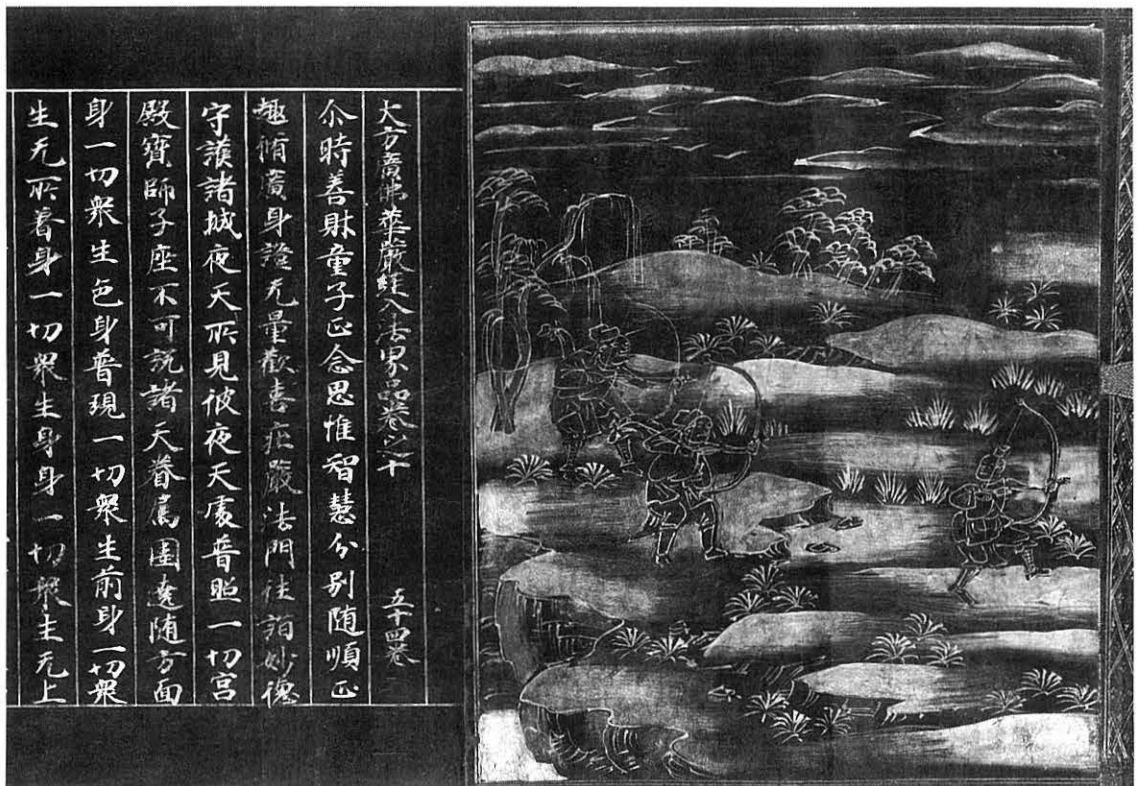 大方廣佛華嚴經入法界品卷之十　五十四卷
尒時善財童子正念思惟智慧分別随順正
趣脩廣身證无量歡喜庄嚴法門往詣妙德
守護諸城夜天所見彼夜天處普照一切宮
殿寶師子座不可說諸天眷属圍遶随方面
身一切衆生色身普現一切衆生前身一切衆
生无所著身一切衆生身身一切衆生无上